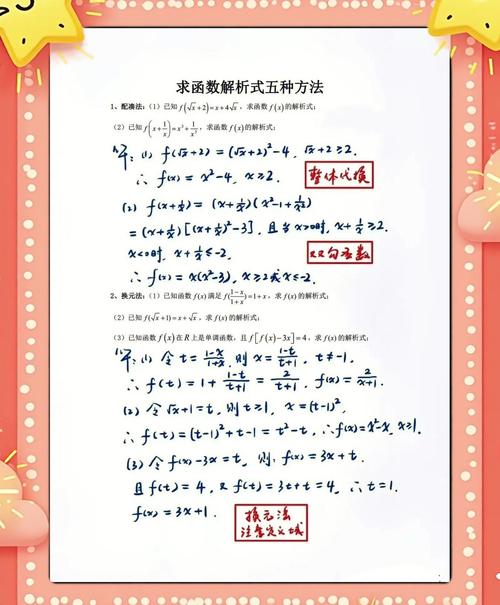 求函数解析式五种方法
1、配凑法:(1)已知 f(√x+2)=x+4√x,求函数 f(x) 的解析式;
(2)已知 f(x+1/x)=x³+1/x³,求函数 f(x) 的解析式;
解:(1) f(√x+2)=(√x+2)²-4, √x+2≥2.
∴ f(x)=x²-4, x≥2.
整体代换
(2) f(x+1/x)=(x+1/x)(x²-1+1/x²)
=(x+1/x)[(x+1/x)²-3], 且当x>0时, x+1/x≥2.
x<0时, x+1/x≤-2.
双勾函数
∴ f(x)=x(x²-3), x≥2或x≤-2.
2、换元法:(1)已知函数 f(x) 满足 f((1-x)/(1+x))=1+x,求 f(x) 的解析式;
(2)已知 f(√x+1)=x+√x,求函数 f(x) 的解析式;
(3)已知函数 f(x) 在 R 上是单调函数,且 f[f(x)-3x]=4,求 f(x) 的解析式;
解:(1) 令 t=(1-x)/(1+x), 则 x=(1-t)/(t+1), t≠-1.
∴ f(t)=1+(1-t)/(t+1)=2/(t+1), ∴ f(x)=2/(x+1).
(2) 令√x+1=t, 则 t≥1, x=(t-1)².
∴ f(t)=(t-1)²+t-1=t²-t, ∴f(x)=x²-x, x≥1.
(3) 令 f(x)-3x=t, 则: f(x)=3x+t.
且 f(t)=4, 又 f(t)=3t+t=4, ∴t=1.
f(x)=3x+1.
换元法
注意定义域